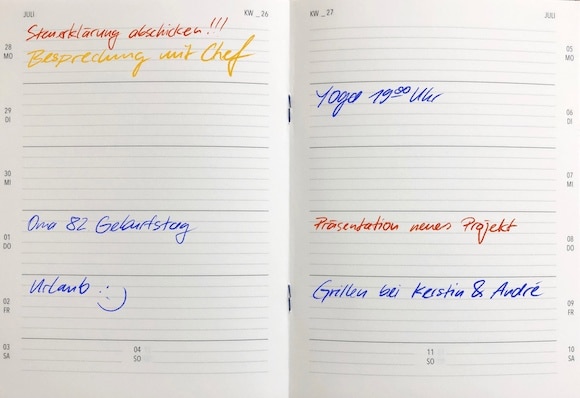 JULI KW _ 26
Steuerklärung abschicken!!!
28 MO
Besprechung mit Chef
29 DI
30 MI
01 DO
Oma 82 Geburtstag
02 FR
Urlaub :)
03 SA
04 SO
KW _ 27 JULI
05 MO
06 DI
Yoga 19⁰⁰ Uhr
07 MI
08 DO
Präsentation neues Projekt
09 FR
Grillen bei Kerstin & André
10 SA
11 SO